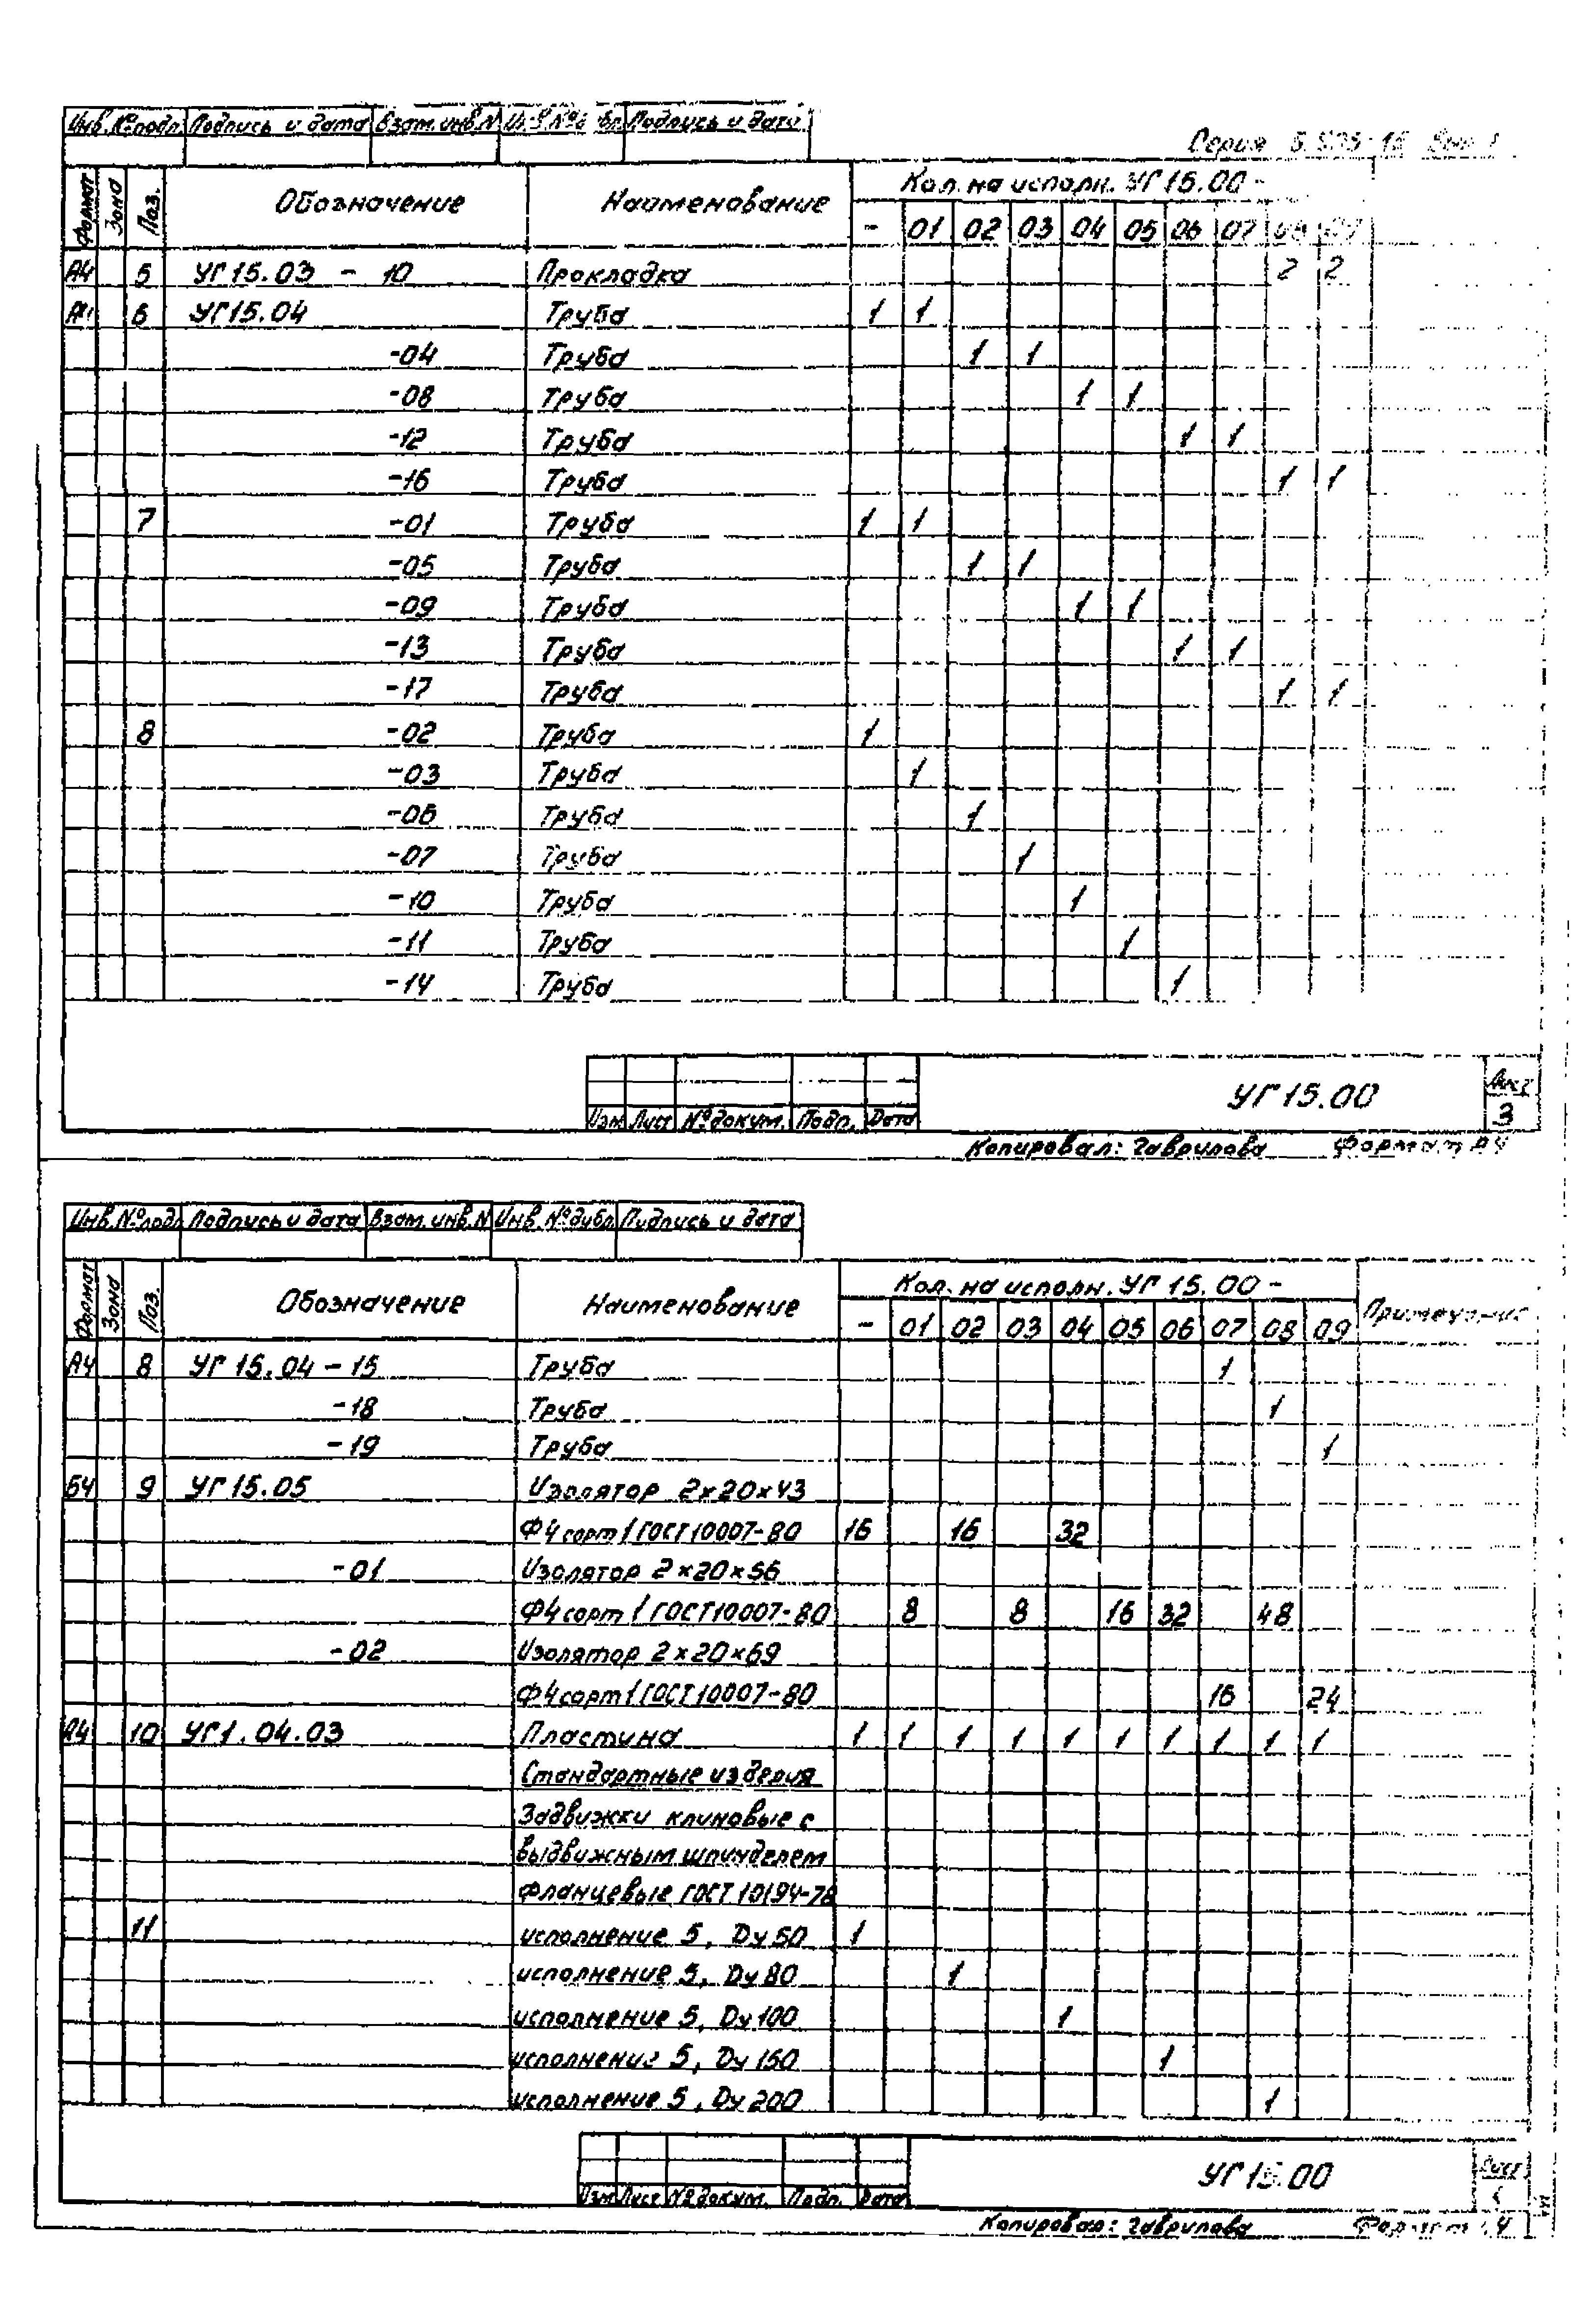 Инв.№подл. Подпись и дата Взам.инв.N Подпись и дата
Серия
Формат Зона Поз. Обозначение Наименование Кол. на исполн. УГ15.00-
- 01 02 03 04 05 06 07 08 09
А4 5 УГ15.03 - 10 Прокладка 2 2
А4 6 УГ15.04 Труба 1 1
-04 Труба 1 1
-08 Труба 1 1
-12 Труба 1 1
-16 Труба 1 1
7 -01 Труба 1 1
-05 Труба 1 1
-09 Труба 1 1
-13 Труба 1 1
-17 Труба 1 1
8 -02 Труба 1
-03 Труба 1
-06 Труба 1
-07 Труба 1
-10 Труба 1
-11 Труба 1
-14 Труба 1
УГ15.00 Лист
3
Изм Лист №докум. Подп. Дата
Копировал: Гаврилова Формат А4
Инв.№подл Подпись и дата Взам.инв.N Инв.№дубл Подпись и дата
Формат Зона Поз. Обозначение Наименование Кол. на исполн. УГ 15.00- Примечание
- 01 02 03 04 05 06 07 08 09
А4 8 УГ 15.04-15 Труба 1
-18 Труба 1
-19 Труба 1
Б4 9 УГ15.05 Изолятор 2×20×43
Ф4 сорт 1 ГОСТ 10007-80 16 16 32
-01 Изолятор 2×20×56
Ф4 сорт 1 ГОСТ 10007-80 8 8 16 32 48
-02 Изолятор 2×20×69
Ф4 сорт 1 ГОСТ 10007-80 16 24
А4 10 УГ1.04.03 Пластина 1 1 1 1 1 1 1 1 1 1
Стандартные изделия
Задвижки клиновые с
выдвижным шпинделем
фланцевые ГОСТ 10194-78
11 исполнение 5, Dу 50 1
исполнение 5, Dу 80 1
исполнение 5, Dу 100 1
исполнение 5, Dу 150 1
исполнение 5, Dу 200 1
УГ15.00 Лист
Изм Лист №докум. Подп. Дата
Копировал: Гаврилова Формат А4